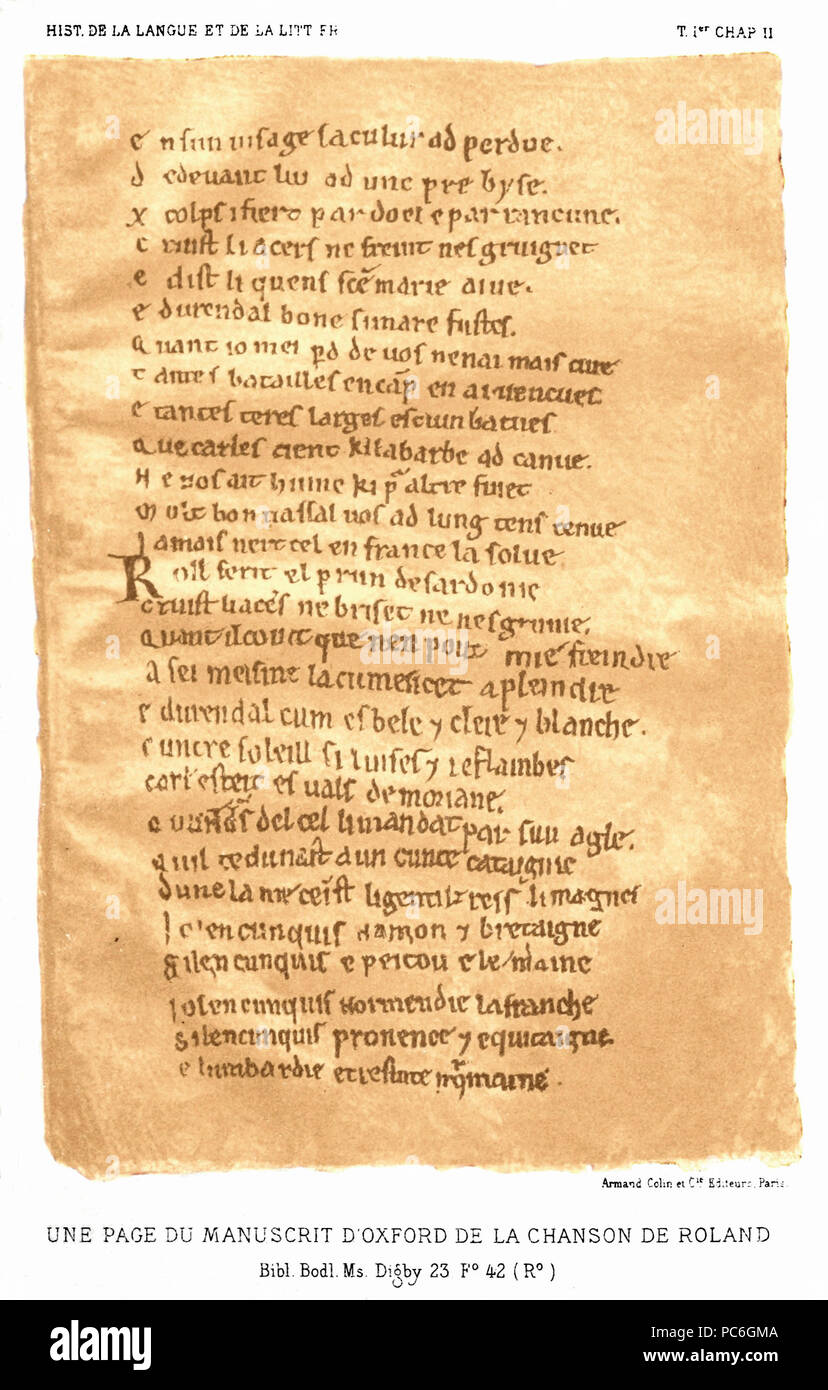 HIST. DE LA LANGUE ET DE LA LITT FR
T. Ier CHAP II
E n sun uisage sa culur ad perdue.
D edeuant lui ad une pre byse.
X colps i fiert par doel e par rancune.
C ruist li acers ne freint ne sgruignet
E dist li quens sce marie aiue.
E durendal bone si mare fustes.
Q uant io mei pd de uos nen ai mais cure
T antes batailles en cap en ai uencues
E tantes teres larges escumbatues
Q ue carles tient ki la barbe ad canue.
N e uos ait hume ki p altre fuiet
M olt bon uassal uos ad lung tens tenue
J amais nert tel en france la solue
R oll ferit el prun de sardonie
Cruist li acers ne briset ne nesgrunie.
Quant il co ueit que nen pout mie freindre
A sei meisme la cumencet a pleindre
E durendal cum es bele 7 clere 7 blanche.
Cuntre soleill si luises 7 reflambes
Carl esteit es uals de moriane.
Q uant ds del cel li mandat par sun agle.
Quil te dunast a un cunte cataignie
Dunc la me ceist li gentilz reis li magnes
Jo l'en cunquis namon 7 bretaigne
Si len cunquis e peitou e le maine
Jo len cunquis normendie la franche
Si len cunquis prouence 7 equitaigne.
E lumbardie et trestute romaine.
Armand Colin et Cie Editeurs, Paris.
UNE PAGE DU MANUSCRIT D'OXFORD DE LA CHANSON DE ROLAND
Bibl. Bodl. Ms. Digby 23 Fo 42 (Ro)
alamy
Image ID: PC6GMA
www.alamy.com